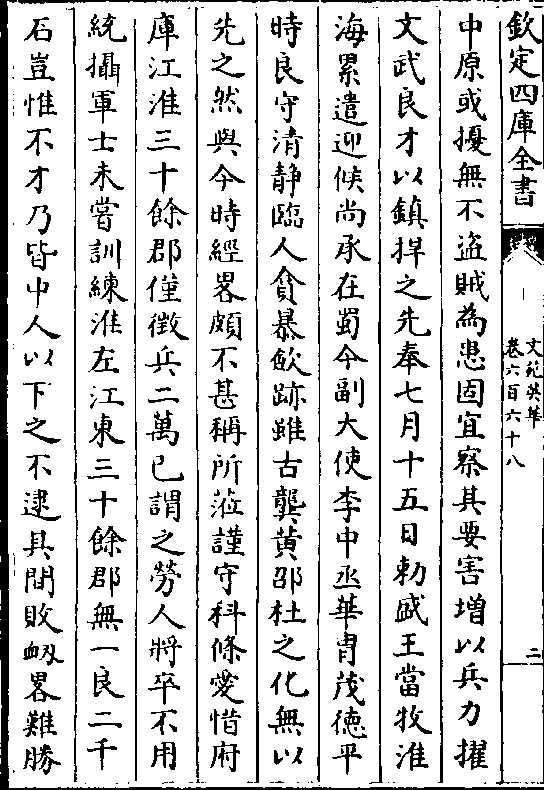 欽定四庫全書
文苑英華
卷六百六十八
二
中原或擾無不盗賊為患固宜察其要害増以兵力擢
文武良才以鎮捍之先奉七月十五日勅盛王當牧淮
海累遣迎候尚承在蜀今副大使李中丞華胄茂徳平
時良守清静臨人貪暴歛跡雖古龔黄邵杜之化無以
先之然與今時經畧頗不甚稱所蒞謹守科條愛惜府
庫江淮三十餘郡僅徴兵二萬已謂之勞人將卒不用
統攝軍士未嘗訓練淮左江東三十餘郡無一良二千
石豈惟不才乃皆中人以下之不逮其間敗衂畧難勝